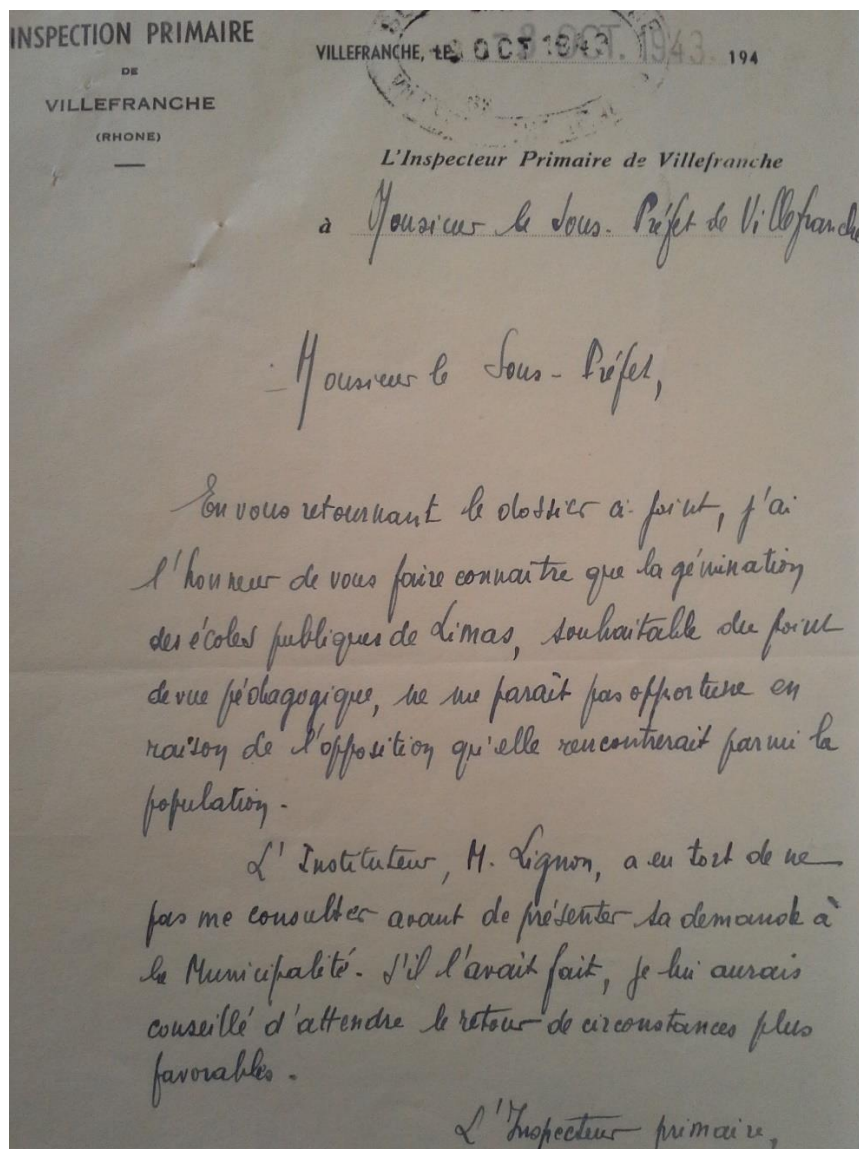 INSPECTION PRIMAIRE
DE
VILLEFRANCHE
(RHONE)
VILLEFRANCHE, LE 8 OCT. 1943. 194
OCT 1943
L'Inspecteur Primaire de Villefranche
à Monsieur le Sous-Préfet de Villefranche
Monsieur le Sous-Préfet,
En vous retournant le dossier ci-joint, j'ai
l'honneur de vous faire connaître que la gémination
des écoles publiques de Limas, souhaitable du point
de vue pédagogique, ne me paraît pas opportune en
raison de l'opposition qu'elle rencontrerait parmi la
population.
L'Instituteur, M. Lignon, a eu tort de ne
pas me consulter avant de présenter sa demande à
la Municipalité. S'il l'avait fait, je lui aurais
conseillé d'attendre le retour de circonstances plus
favorables.
L'Inspecteur primaire,